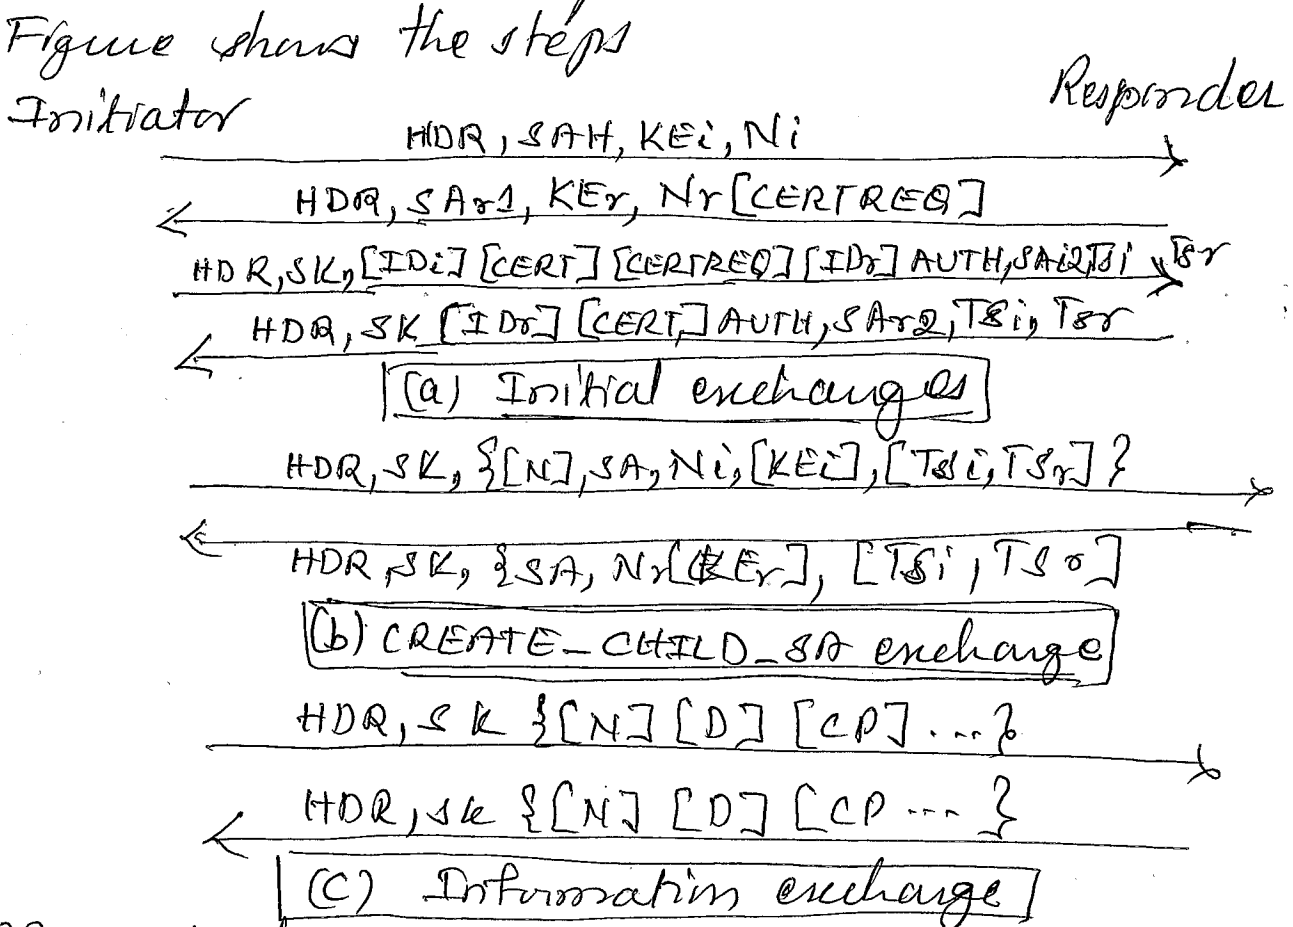 Figure shows the steps
Initiator
Responder
HDR, SAH, KEi, Ni
HDR, SAr1, KEr, Nr [CERTREQ]
HDR, SK, [IDi] [CERT] [CERTREQ] [IDr] AUTH, SAi2, TSi, TSr
HDR, SK [IDr] [CERT] AUTH, SAr2, TSi, TSr
(a) Initial exchanges
HDR, SK, {[N], SA, Ni, [KEi], [TSi, TSr] }
HDR, SK, {SA, Nr [KEr], [TSi, TSr]
(b) CREATE_CHILD_SA exchange
HDR, SK {[N] [D] [CP] ... }
HDR, SK {[N] [D] [CP ... }
(C) Information exchange